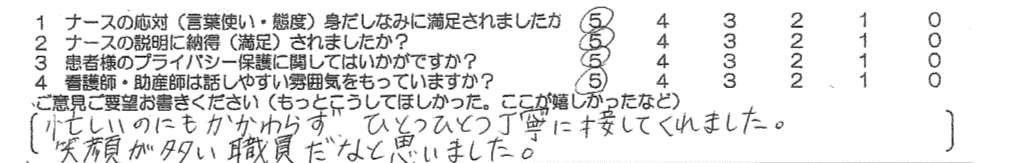 1 ナースの応対（言葉使い・態度）身だしなみに満足されましたか 5 4 3 2 1 0
2 ナースの説明に納得（満足）されましたか？ 5 4 3 2 1 0
3 患者様のプライバシー保護に関してはいかがですか？ 5 4 3 2 1 0
4 看護師・助産師は話しやすい雰囲気をもっていますか？ 5 4 3 2 1 0
ご意見ご要望お書きください（もっとこうしてほしかった。ここが嬉しかったなど）
忙しいのにもかかわらず ひとつひとつ丁寧に接してくれました。
笑顔が多い職員だなと思いました。